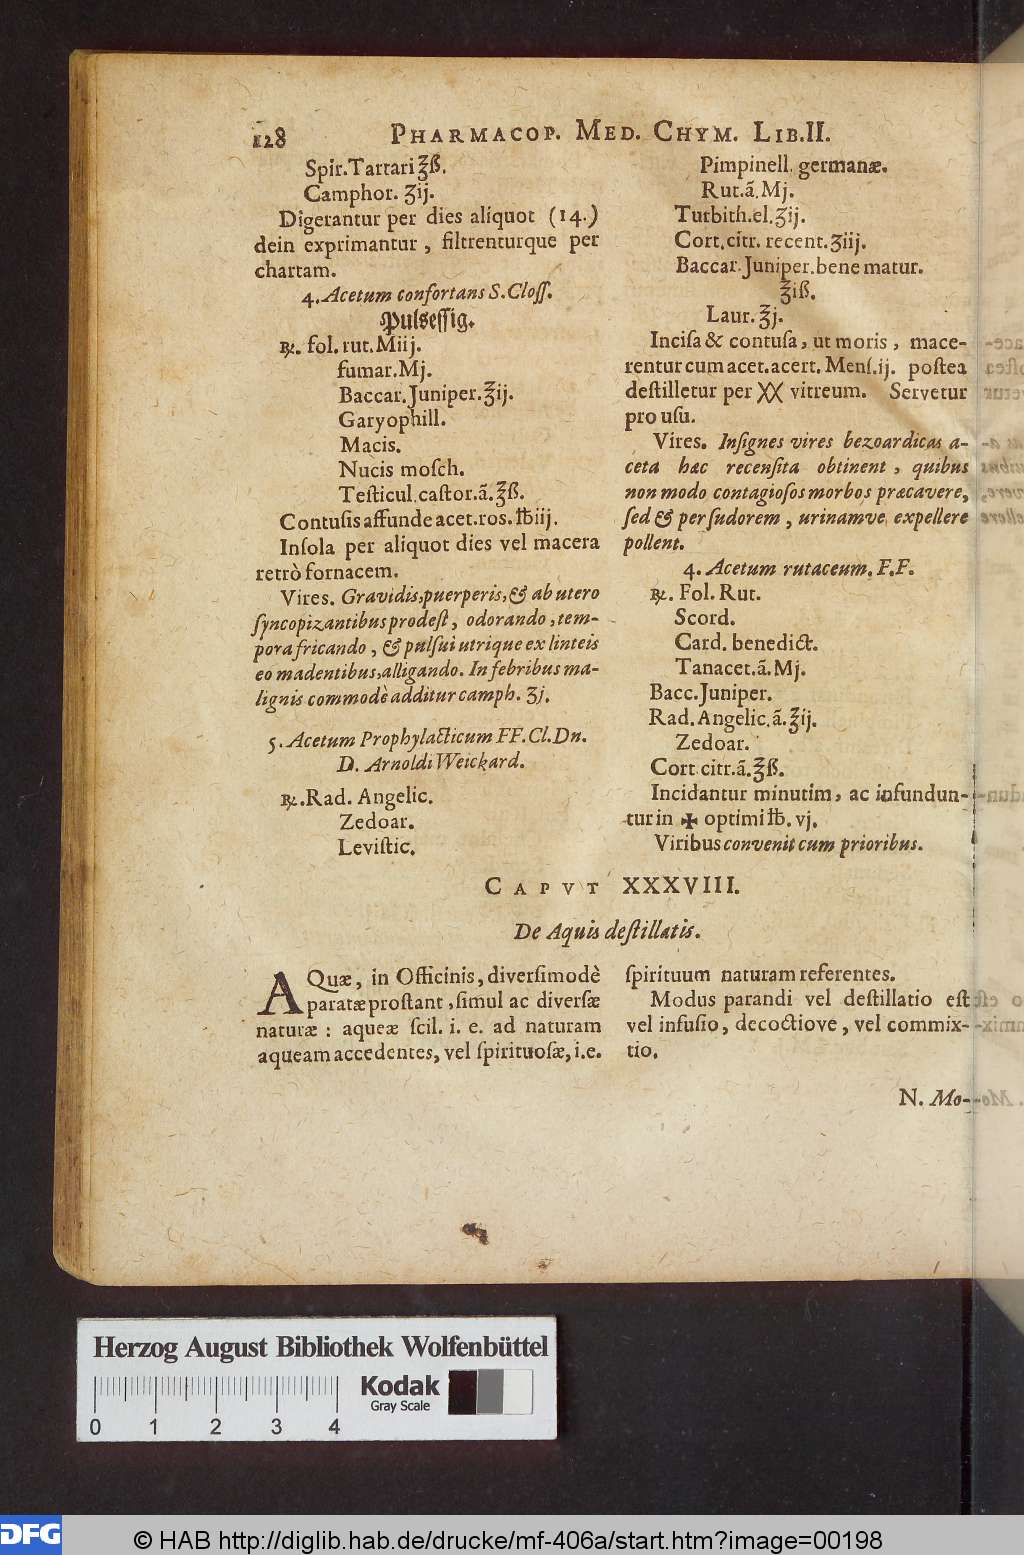 128 PHARMACOP. MED. CHYM. LIB. II.
Spir. Tartari ℥ß.
Camphor. ʒij.
Digerantur per dies aliquot (14.)
dein exprimantur, filtrenturque per
chartam.
4. Acetum confortans S. Cloſſ.
Pulseſſig.
℞. fol. rut. Miij.
fumar. Mj.
Baccar. Juniper. ℥ij.
Garyophill.
Macis.
Nucis moſch.
Teſticul. caſtor. ā. ℥ß.
Contuſis affunde acet. ros. ℔iij.
Inſola per aliquot dies vel macera
retrò fornacem.
Vires. Gravidis, puerperis, & ab utero
ſyncopizantibus prodeſt, odorando, tem-
pora fricando, & pulſui utrique ex linteis
eo madentibus, alligando. In febribus ma-
lignis commodè additur camph. ʒj.
5. Acetum Prophylacticum FF. Cl. Dn.
D. Arnoldi Weickard.
℞. Rad. Angelic.
Zedoar.
Leviſtic.
Pimpinell. germanæ.
Rut. ā. Mj.
Turbith. el. ʒij.
Cort. citr. recent. ʒiij.
Baccar. Juniper. bene matur.
℥iß.
Laur. ℥j.
Inciſa & contuſa, ut moris, mace-
rentur cum acet. acert. Menſ. ij. poſtea
deſtilletur per XX vitreum. Servetur
pro uſu.
Vires. Inſignes vires bezoardicas a-
ceta hæc recenſita obtinent, quibus
non modo contagioſos morbos præcavere,
ſed & per ſudorem, urinamve expellere
pollent.
4. Acetum rutaceum. F. F.
℞. Fol. Rut.
Scord.
Card. benedict.
Tanacet. ā. Mj.
Bacc. Juniper.
Rad. Angelic. ā. ℥ij.
Zedoar.
Cort. citr. ā. ℥ß.
Incidantur minutim, ac infundun-
tur in ✠ optimi ℔. vj.
Viribus convenit cum prioribus.
CAPVT XXXVIII.
De Aquis deſtillatis.
AQuæ, in Officinis, diverſimodè
paratæ proſtant, ſimul ac diverſæ
naturæ: aqueæ ſcil. i. e. ad naturam
aqueam accedentes, vel ſpirituoſæ, i. e.
ſpirituum naturam referentes.
Modus parandi vel deſtillatio eſt
vel infuſio, decoctiove, vel commix-
tio.
N. Mo-
Herzog August Bibliothek Wolfenbüttel
0 1 2 3 4
Kodak
Gray Scale
DFG
© HAB http://diglib.hab.de/drucke/mf-406a/start.htm?image=00198